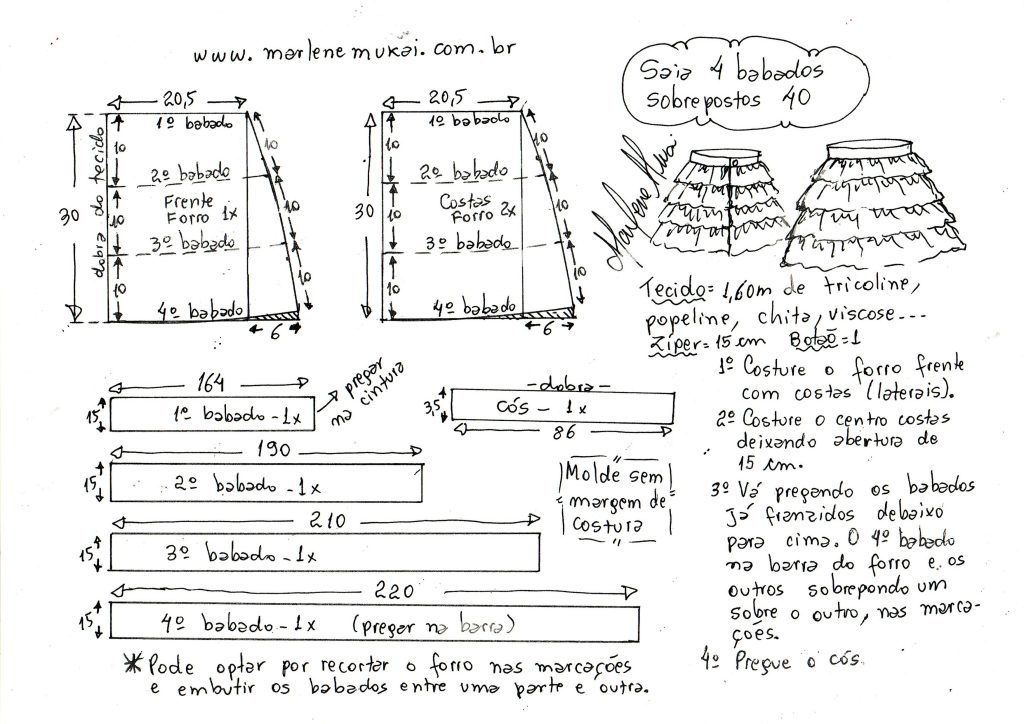 www.marlenemukai.com.br
Saia 4 babados
sobrepostos 40
20,5
1º babado
10
10
2º babado
Frente
Forro 1x
10
10
3º babado
10
10
4º babado
30
dobra do tecido
6
20,5
1º babado
10
10
2º babado
Costas
Forro 2x
10
10
3º babado
10
10
4º babado
30
6
Marlene Mukai
Tecido = 1,60m de tricoline,
popeline, chita, viscose---
Zíper = 15 cm Botão = 1
1º Costure o forro frente
com costas (laterais).
2º Costure o centro costas
deixando abertura de
15 cm.
3º Vá pregando os babados
já franzidos debaixo
para cima. O 4º babado
na barra do forro e os
outros sobrepondo um
sobre o outro, nas marca-
ções.
4º Pregue o cós.
164
15
1º babado - 1x
pregar
na cintura
-dobra-
3,5
cós - 1x
86
190
15
2º babado - 1x
Molde sem
margem de
costura
210
15
3º babado - 1x
220
15
4º babado - 1x (pregar na barra)
* Pode optar por recortar o forro nas marcações
e embutir os babados entre uma parte e outra.